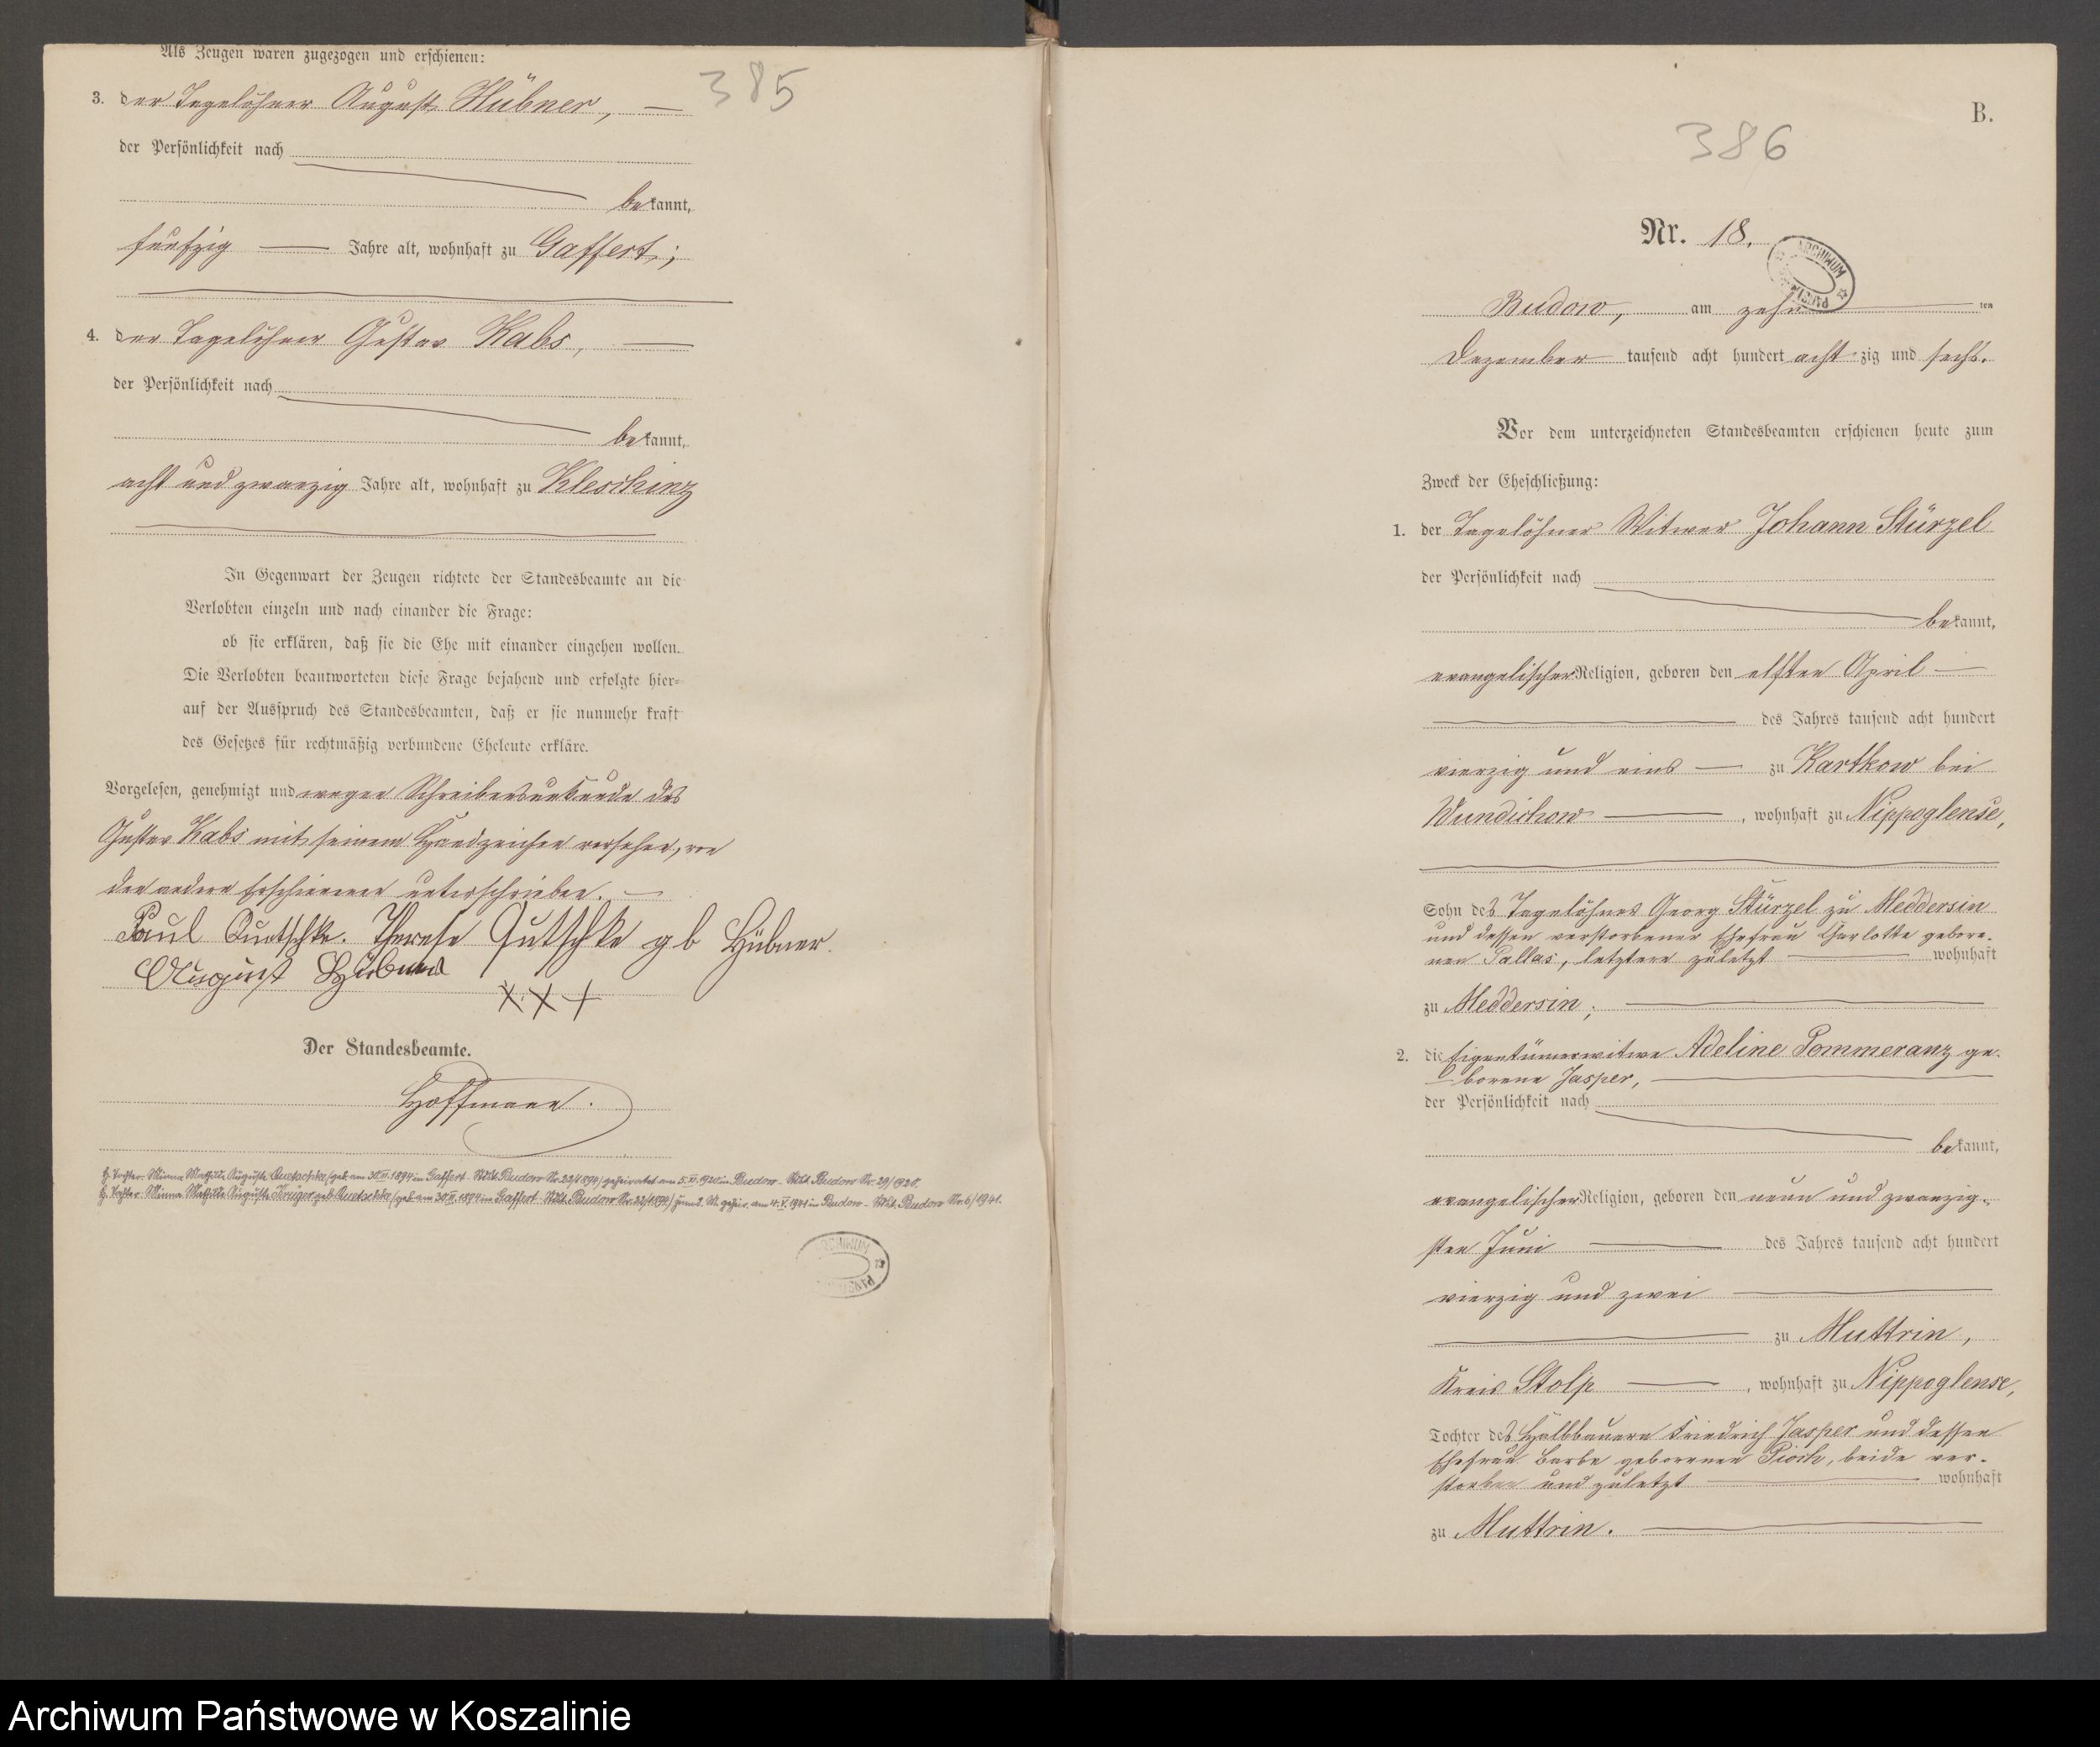 Als Zeugen waren zugezogen und erschienen:
385
3. der Tagelöhner August Hübner,
der Persönlichkeit nach
bekannt,
fünfzig Jahre alt, wohnhaft zu Gaffert;
4. der Tagelöhner Gustav Kabs,
der Persönlichkeit nach
bekannt,
acht und zwanzig Jahre alt, wohnhaft zu Kleschinz
In Gegenwart der Zeugen richtete der Standesbeamte an die
Verlobten einzeln und nach einander die Frage:
ob sie erklären, daß sie die Ehe mit einander eingehen wollen.
Die Verlobten beantworteten diese Frage bejahend und erfolgte hier-
auf der Ausspruch des Standesbeamten, daß er sie nunmehr kraft
des Gesetzes für rechtmäßig verbundene Eheleute erkläre.
Vorgelesen, genehmigt und wegen Schreibensunkunde des
Gustav Kabs mit seinem Handzeichen versehen, von
den andern Erschienenen unterschrieben.
Paul Quetschke. Therese Qutschke gb Hübner.
August Hübner
XXX
Der Standesbeamte.
Hoffmann.
Tochter: Minna Mathilde Auguste Quetschke (geb. am 30.VI.1894 in Gaffert - StdA. Budow Nr. 22/1894) geheiratet am 5.XI.1920 in Budow - StdA. Budow Nr. 29/1920.
Tochter: Minna Mathilde Auguste Krüger geb. Quetschke (geb. am 30.VI.1894 in Gaffert - StdA. Budow Nr. 22/1894) zum 2. M. geheir. am 4.V.1941 in Budow - StdA. Budow Nr. 6/1941.
ARCHIWUM
B.
386
Nr. 18.
ARCHIWUM
Budow, am zehnten
Dezember tausend acht hundert achtzig und sechs.
Vor dem unterzeichneten Standesbeamten erschienen heute zum
Zweck der Eheschließung:
1. der Tagelöhner Witwer Johann Stürzel
der Persönlichkeit nach
bekannt,
evangelischer Religion, geboren den elften April
des Jahres tausend acht hundert
vierzig und eins zu Kartkow bei
Wundichow, wohnhaft zu Nippoglense,
Sohn des Tagelöhners Georg Stürzel zu Meddersin
und dessen verstorbener Ehefrau Charlotte gebore-
nen Pallas, letztere zuletzt wohnhaft
zu Meddersin;
2. die Eigentümerwitwe Adeline Pommeranz ge-
borene Jasper,
der Persönlichkeit nach
bekannt,
evangelischer Religion, geboren den neun und zwanzig-
sten Juni des Jahres tausend acht hundert
vierzig und zwei
zu Muttrin,
Kreis Stolp, wohnhaft zu Nippoglense,
Tochter des Halbbauern Friedrich Jasper und dessen
Ehefrau Barbe geborenen Piosch, beide ver-
storben und zuletzt wohnhaft
zu Muttrin.
Archiwum Państwowe w Koszalinie